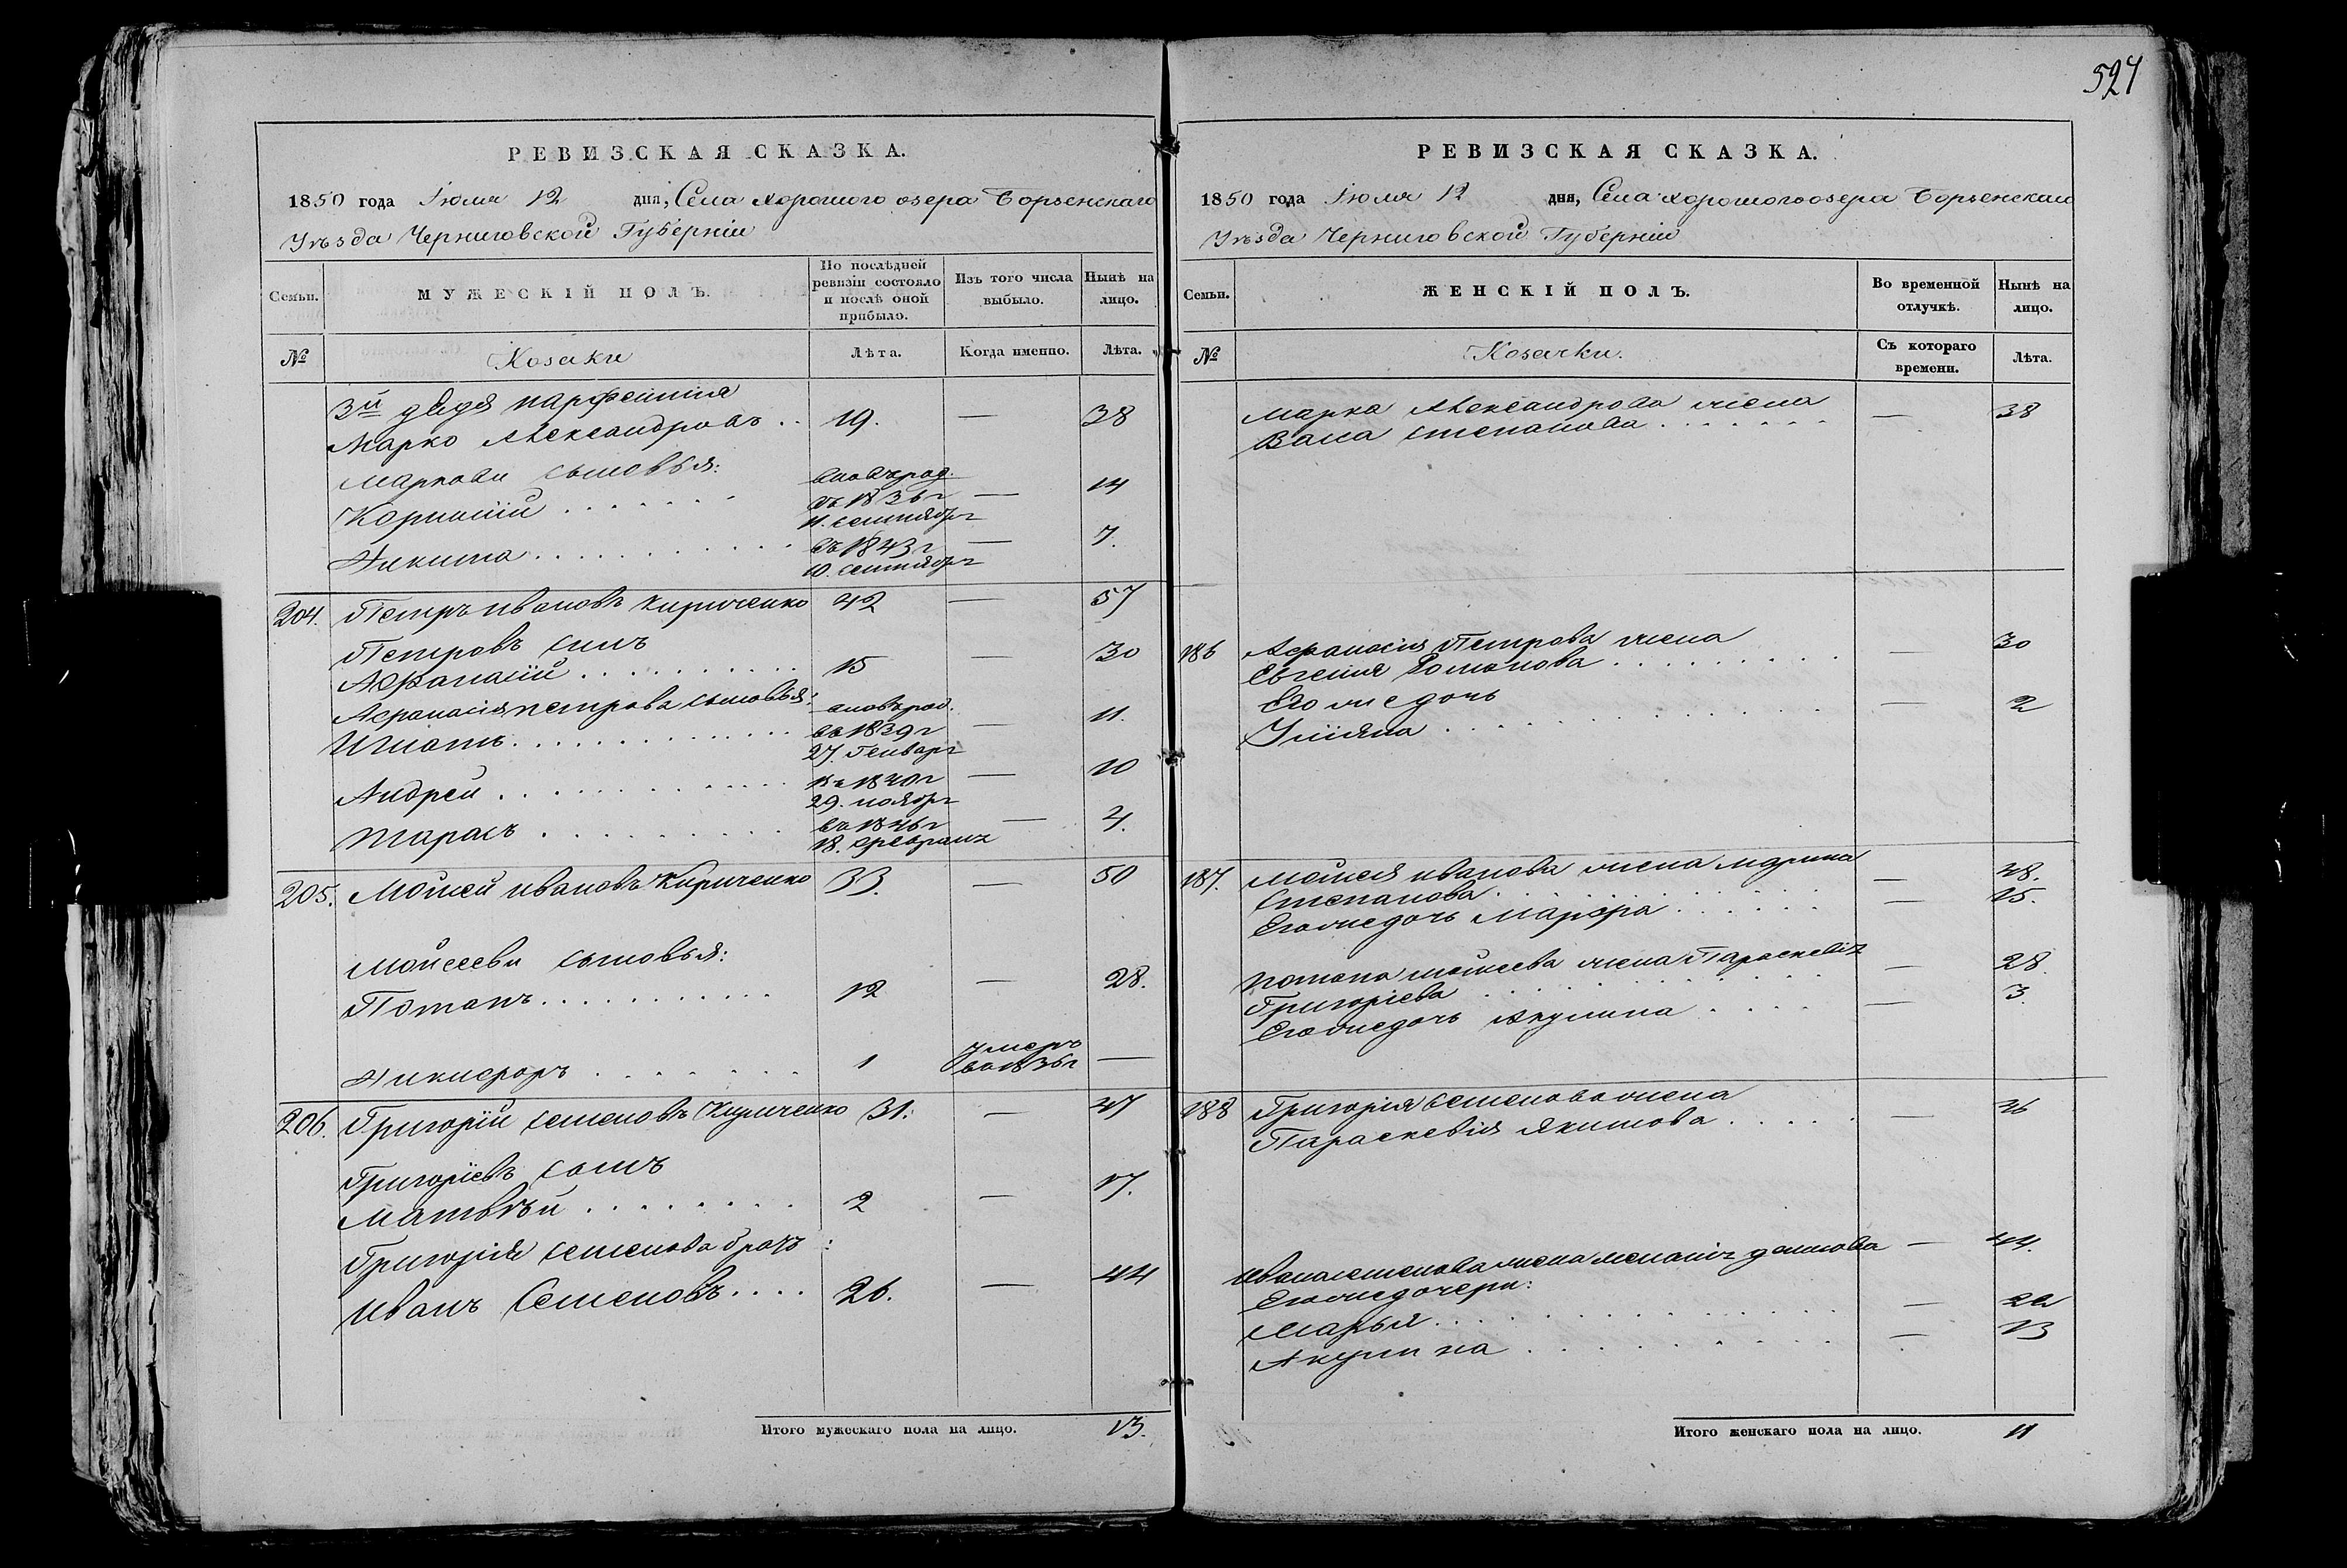 527
РЕВИЗСКАЯ СКАЗКА.
1850 года Іюля 12 дня, Села Хорошого озера Борзенскаго
Уѣзда Черниговской Губерніи
Семьи.
МУЖЕСКІЙ ПОЛЪ.
По послѣдней ревизіи состояло и послѣ оной прибыло.
Изъ того числа выбыло.
Нынѣ на лицо.
№
Козаки
Лѣта.
Когда именно.
Лѣта.
3й дядя Парфентія
Марко Александровъ . . 19. — 38
Маркови сыновья: вновърод.
Корнилій . . . . . . въ 1836г — 14
11. сентября
Никита . . . . . . . . . . въ 1843г — 7.
10. сентября
204. Петръ Ивановъ Кириченко 42 — 57
Петровъ сынъ
Афанасій . . . . . . . . . 15 — 30
Афанасія Петрова сыновья: вновърод.
Игнатъ . . . . . . . . . . . въ 1839г — 11.
27. Генваря
Андрей . . . . . . . . . . . въ 1840г — 10
29. ноября
Тарасъ . . . . . . . . . . въ 1846г — 4.
18. февраля
205. Мойсей Ивановъ Кириченко 33. — 50
Мойсееви сыновья:
Потапъ . . . . . . . . . . . 12 — 28.
Никифоръ . . . . . . . . 1 умеръ —
въ 1836г
206. Григорій Семеновъ Кириченко 31. — 47
Григоріевъ сынъ
Матвѣй . . . . . . . . 2 — 17.
Григорія Семенова братъ:
Иванъ Семеновъ . . . . 26. — 44
Итого мужескаго пола на лицо. 13.
РЕВИЗСКАЯ СКАЗКА.
1850 года Іюля 12 дня, Села Хорошого озера Борзенскаго
Уѣзда Черниговской Губерніи
Семьи.
ЖЕНСКІЙ ПОЛЪ.
Во временной отлучкѣ.
Нынѣ на лицо.
№
Козачки.
Съ котораго времени.
Лѣта.
Марка Александрова жена
Васса Степанова . . . . . . . — 38
186 Афанасія Петрова жена
Евгенія Романова . . . . . . . . . — 30
Его же дочь
Уліяна . . . . . . . . . . . . . — 2
187. Мойсея Иванова жена Мдрина
Степанова . . . . . . . . . . — 48.
Его же дочь Марфа . . . . . . — 15.
Потапа Мойсеева жена Параскевія
Григоріева . . . . . . . . . . — 28.
Его же дочь Акулина . . . . — 3.
188 Григорія Семенова жена
Параскевія Якимова . . . . . — 46
Ивана Семенова жена Меланія Данилова — 44.
Его же дочери:
Марья . . . . . . . . . . . . . — 20
Акулина . . . . . . . . . . — 13
Итого женскаго пола на лицо. 11